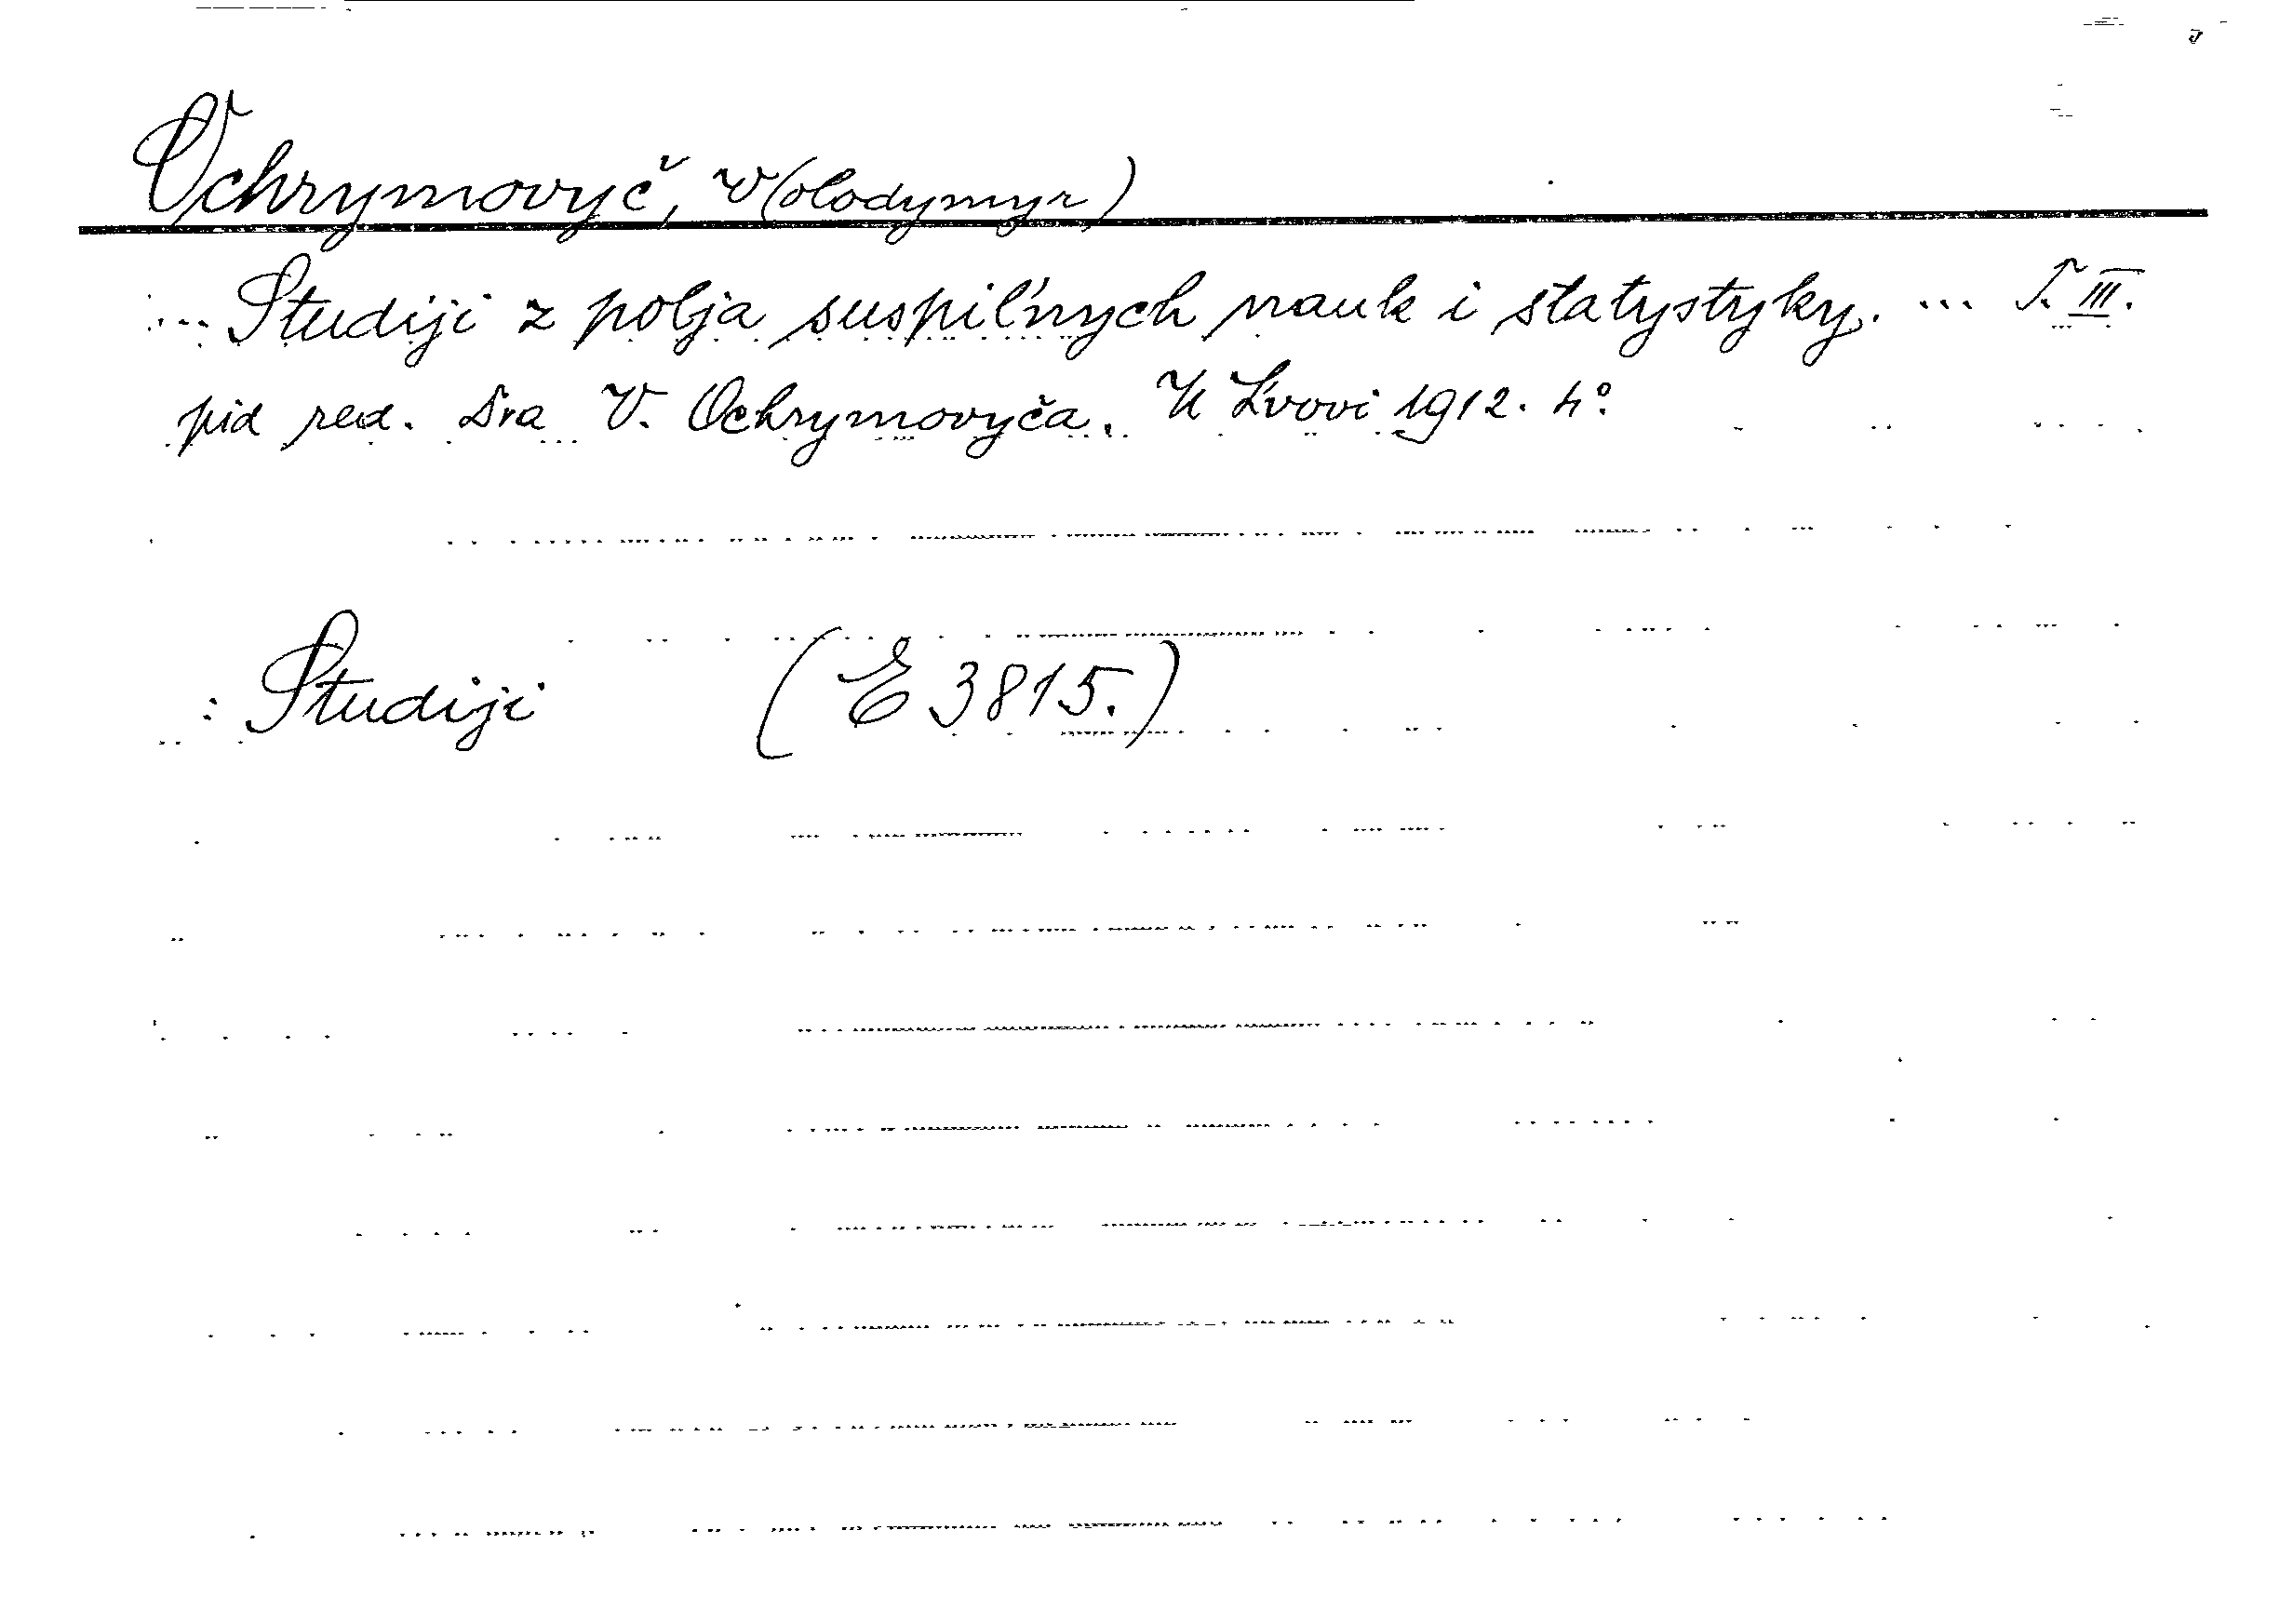 Ochrymovyč, V(olodymyr)
... Studiji z polja suspil'nych nauk i statystyky. ... T. III.
pid red. Dra V. Ochrymovyča. U L'vovi 1912. 4°.
: Studiji (E 3815.)